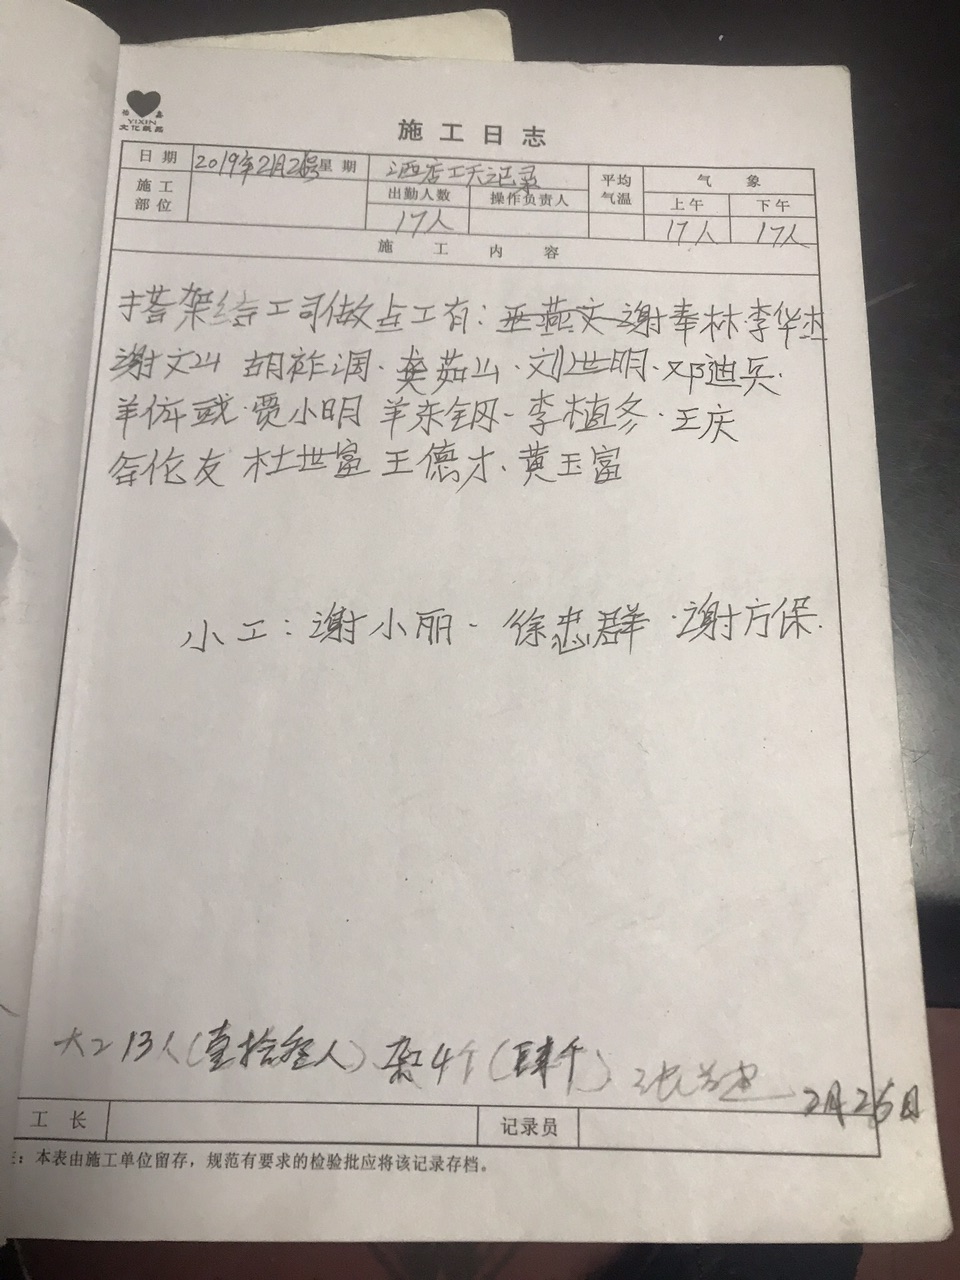 怡鑫
YIXIN
文化纸品
施工日志
日期 2019年2月26号 星期 酒店工天记录 平均气温 气象
施工部位 出勤人数 操作负责人 上午 下午
17人 17人 17人
施工内容
搭架综工司做点工有：王燕文 谢奉林·李华杰
谢文山 胡祚润·龚茹山·刘世明·邓迪兵·
羊 贾小明 羊东钢·李植冬·王庆
伦友 杜世富 王德才·黄玉富
小工：谢小丽·徐忠群·谢方保·
大工13人（壹拾叁人）杂工4个（肆个）
2月26日
工长 记录员
：本表由施工单位留存，规范有要求的检验批应将该记录存档。